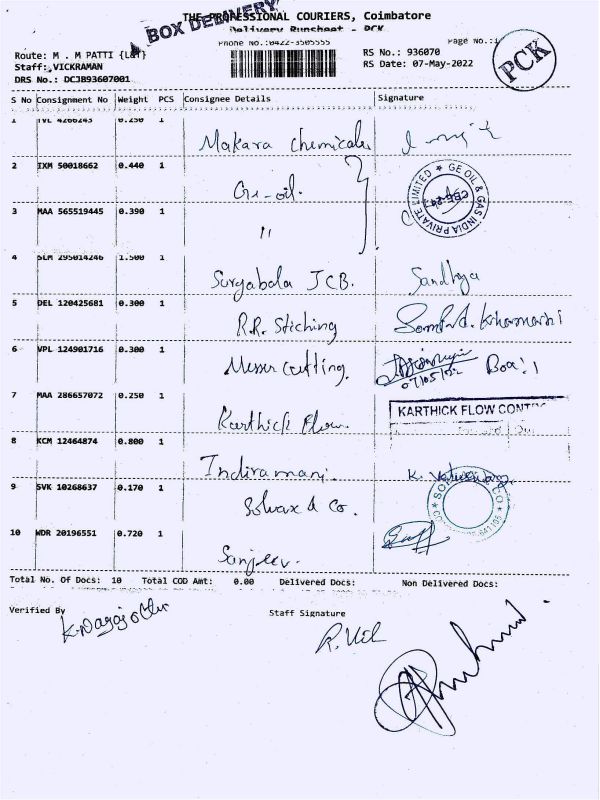 THE PROFESSIONAL COURIERS, Coimbatore
BOX DELIVERY
Delivery Runsheet - PCK
Phone No.:0422-3505555
Page No.:1
PCK
Route: M . M PATTI {L&T}
RS No.: 936070
Staff: VICKRAMAN
RS Date: 07-May-2022
DRS No.: DCJB93607001
S No Consignment No Weight PCS Consignee Details Signature
1 TVL 4266243 0.250 1 Makara Chemicals
2 IXM 50018662 0.440 1 Ge-oil.
GE OIL & GAS INDIA PRIVATE LIMITED
3 MAA 565519445 0.390 1 "
4 SLM 295014246 1.500 1 Suryabala JCB. Sandhya
5 DEL 120425681 0.300 1 R.R. Stiching
6 VPL 124901716 0.300 1 Messer Cutting.
07/05/22
7 MAA 286657072 0.250 1 Karthick Flow.
KARTHICK FLOW CONT
8 KCM 12464874 0.800 1 Indiramani.
9 SVK 10268637 0.170 1 & Co.
641105
10 WDR 20196551 0.720 1 Sanjeev.
Total No. Of Docs: 10 Total COD Amt: 0.00 Delivered Docs: Non Delivered Docs:
Verified By
Staff Signature